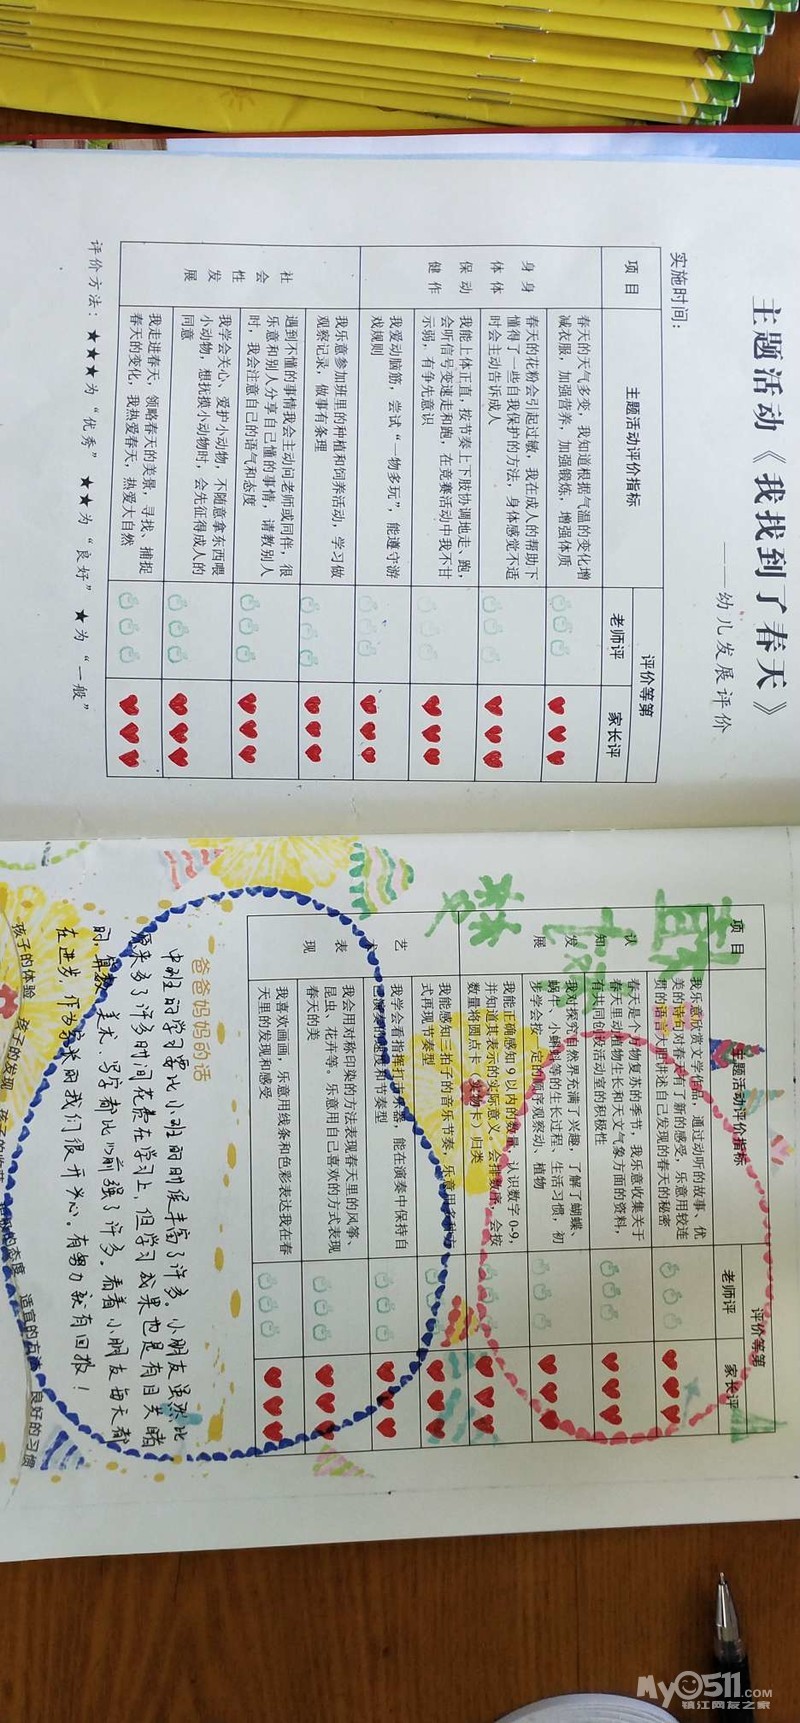 主题活动《我找到了春天》
——幼儿发展评价
实施时间：
项 目
主题活动评价指标
评价等第
老师评
家长评
身体保健
身体动作
春天的天气多变，我知道根据气温的变化增
减衣服，加强营养，加强锻炼，增强体质
春天的花粉会引起过敏，我在成人的帮助下
懂得了一些自我保护的方法，身体感觉不适
时会主动告诉成人
我能上体正直，按节奏上下肢协调地走、跑，
会听信号变速走和跑，在竞赛活动中我不甘
示弱，有争先意识
我爱动脑筋，尝试“一物多玩”，能遵守游
戏规则
社会性发展
我乐意参加班里的种植和饲养活动，学习做
观察记录，做事有条理
遇到不懂的事情我会主动问老师或同伴，很
乐意和别人分享自己懂的事情，请教别人
时，我会注意自己的语气和态度
我学会关心、爱护小动物，不随意拿东西喂
小动物，想抚摸小动物时，会先征得成人的
同意
我走进春天，领略春天的美景，寻找、捕捉
春天的变化，我热爱春天，热爱大自然
评价方法：★★★为“优秀” ★★为“良好” ★为“一般”
项 目
主题活动评价指标
评价等第
老师评
家长评
认知发展
我乐意欣赏文学作品，通过动听的故事、优
美的诗句对春天有了新的感受，乐意用较连
贯的语言大胆讲述自己发现的春天的秘密
春天是个万物复苏的季节，我乐意收集关于
春天里动植物生长和天文气象方面的资料，
有共同创设活动室的积极性
我对探究自然界充满了兴趣，了解了蝴蝶、
蜗牛、小蝌蚪等的生长过程、生活习惯，初
步学会按一定的顺序观察动、植物
我能正确感知9以内的数量，认识数字0-9，
并知道其表示的实际意义，会排数序，会按
数量将圆点卡（实物卡）归类
艺术表现
我能感知三拍子的音乐节奏，乐意用多种方
式再现节奏型
我学会看指挥打击乐器，能在演奏中保持自
己演奏的速度和节奏型
我会用对称印染的方法表现春天里的风筝、
昆虫、花卉等。乐意用自己喜欢的方式表现
春天的美
我喜欢画画，乐意用线条和色彩表达我在春
天里的发现和感受
爸爸妈妈的话
中班的学习要比小班的时候丰富了许多。小朋友虽然比
原来多了许多时间花费在学习上，但学习成果也是有目共睹
的，算数、美术、写字都比以前强了许多。看着小朋友每天都
在进步，作为家长的我们很开心。有努力就有回报！
孩子的体验 孩子的发现 的态度 适宜的方法 良好的习惯
My0511.com
镇江网友之家